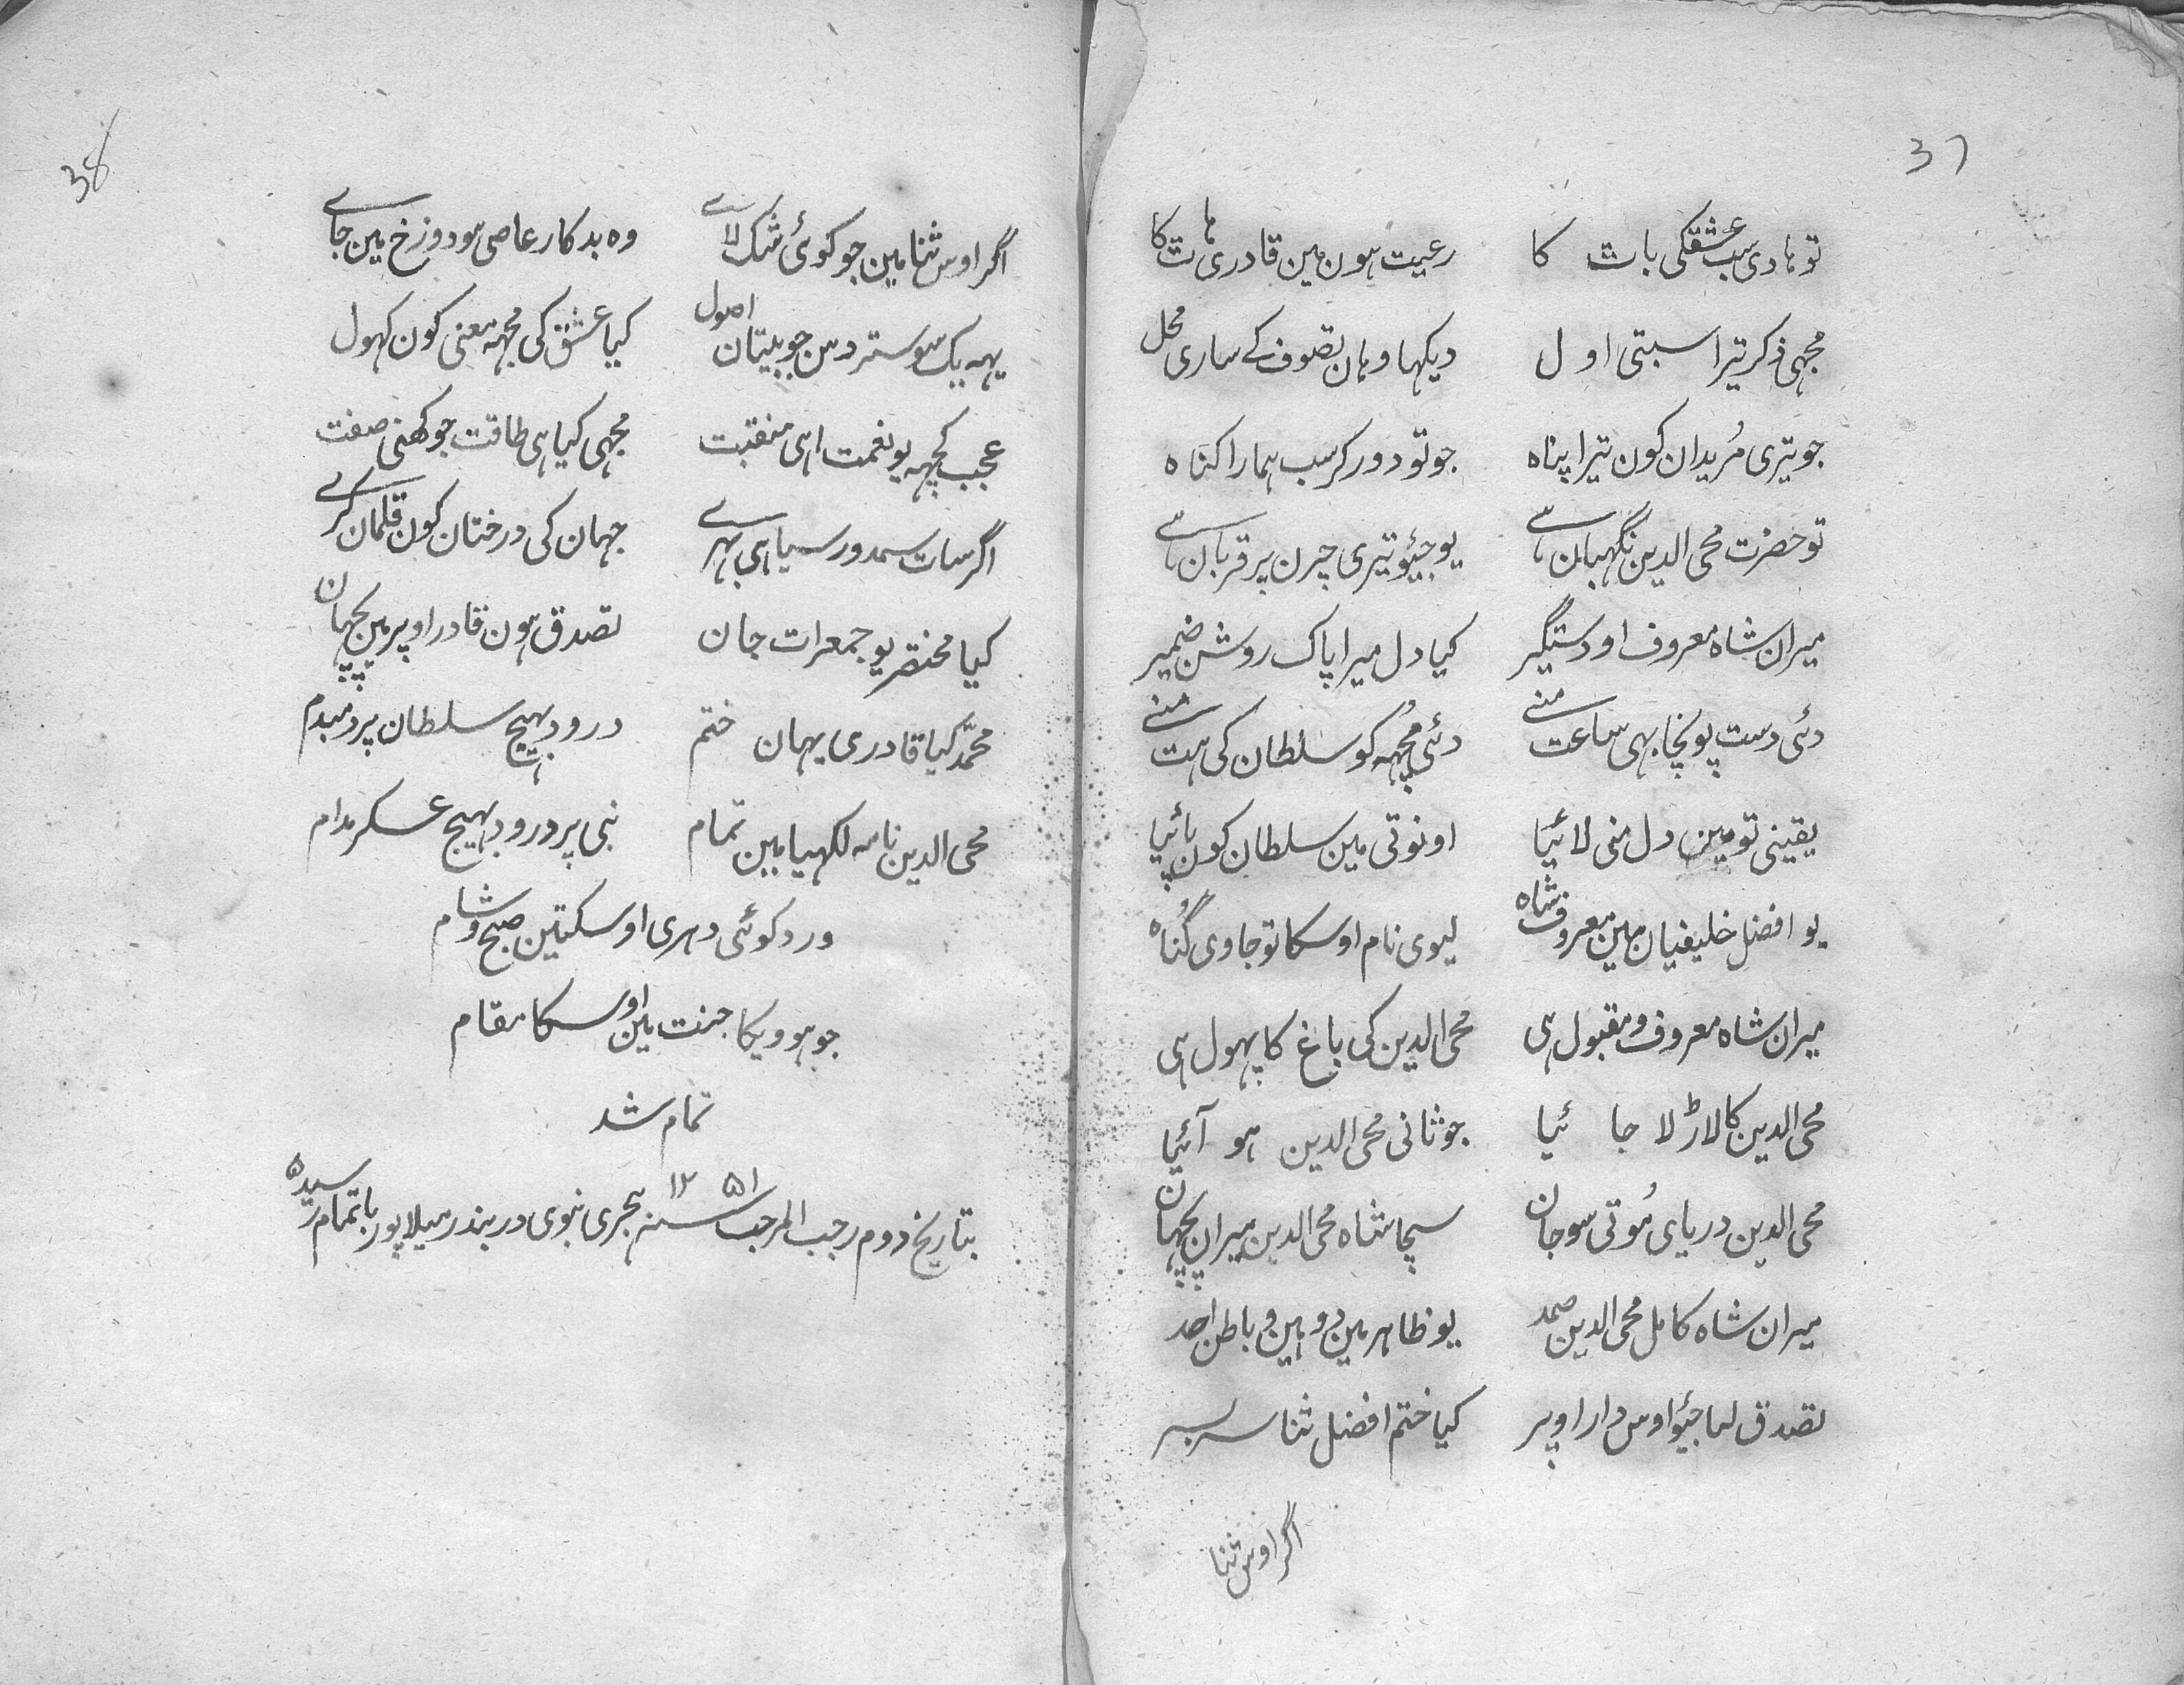 37
تو ہادی سب عشقکی باٹ کا رعیت ہون مین قادری ہات کا
مجھی ذکر تیرا سبتی اول دیکہا وہان تصوف کے ساری محل
جو تیری مُریدان کون تیرا پناہ جو تو دور کر سب ہمارا کناہ
تو حضرت محی الدین نگہبان ہے یو جیئو تیری چرن پر قربان ہے
میران شاہ معروف او دستگیر کیا دل میرا پاک روشن ضمیر
دئی دست پونچا بہی ساعت منے دئی مُجہہ کو سلطان کی ہت منے
یقینی تو مین دل منی لائیا او نوتی مین سلطان کون پائیا
یو افضل خلیفیان مین معروف شاہ لیوی نام اوسکا تو جاوی گُناہ
میران شاہ معروف و مقبول ہی محی الدین کی باغ کا پہول ہی
محی الدین کا لاڑلا جا ئیا جو ثانی محی الدین ہو آئیا
محی الدین دریای مُوتی سو جان سچا شاہ محی الدین میران پچہان
میران شاہ کامل محی الدین صمد یو ظاہر مین دو ہین و باطن احد
تصدق لما جیئو اوس دار اوپر کیا ختم افضل ثنا سربسر
اگر اوس ثنا
38
اگر اوس ثنا مین جو کوئی شک لاے وہ بدکار عاصی ہو دوزخ مین جاے
یہہ یک سو ستر دس جو بیتان اصول کیا عشق کی مجہہ معنی کون کہول
عجب کچہہ یو نعمت اہی منقبت مجہی کیا ہی طاقت جو کھنی صفت
اگر سات سمدور سیاہی بہرے جہان کی درختان کون قلمان کرے
کیا مختصر یو جمعرات جان تصدق ہون قادر اوپر مین پچہان
محمّد کیا قادری یہان ختم درود بہیج سلطان پر دمبدم
محی الدین نامہ لکہیا مین تمام نبی پر درود بہیج عسکر مدام
ورد کوئی دہری اوسکتین صبح و شام
جو ہوویکا جنت مین اوسکا مقام
تمام شد
بتاریخ دوم رجب المرجب سنہ ۱۲۵۱ ہجری نبوی در بندر میلاپور باتمام رسیدہ